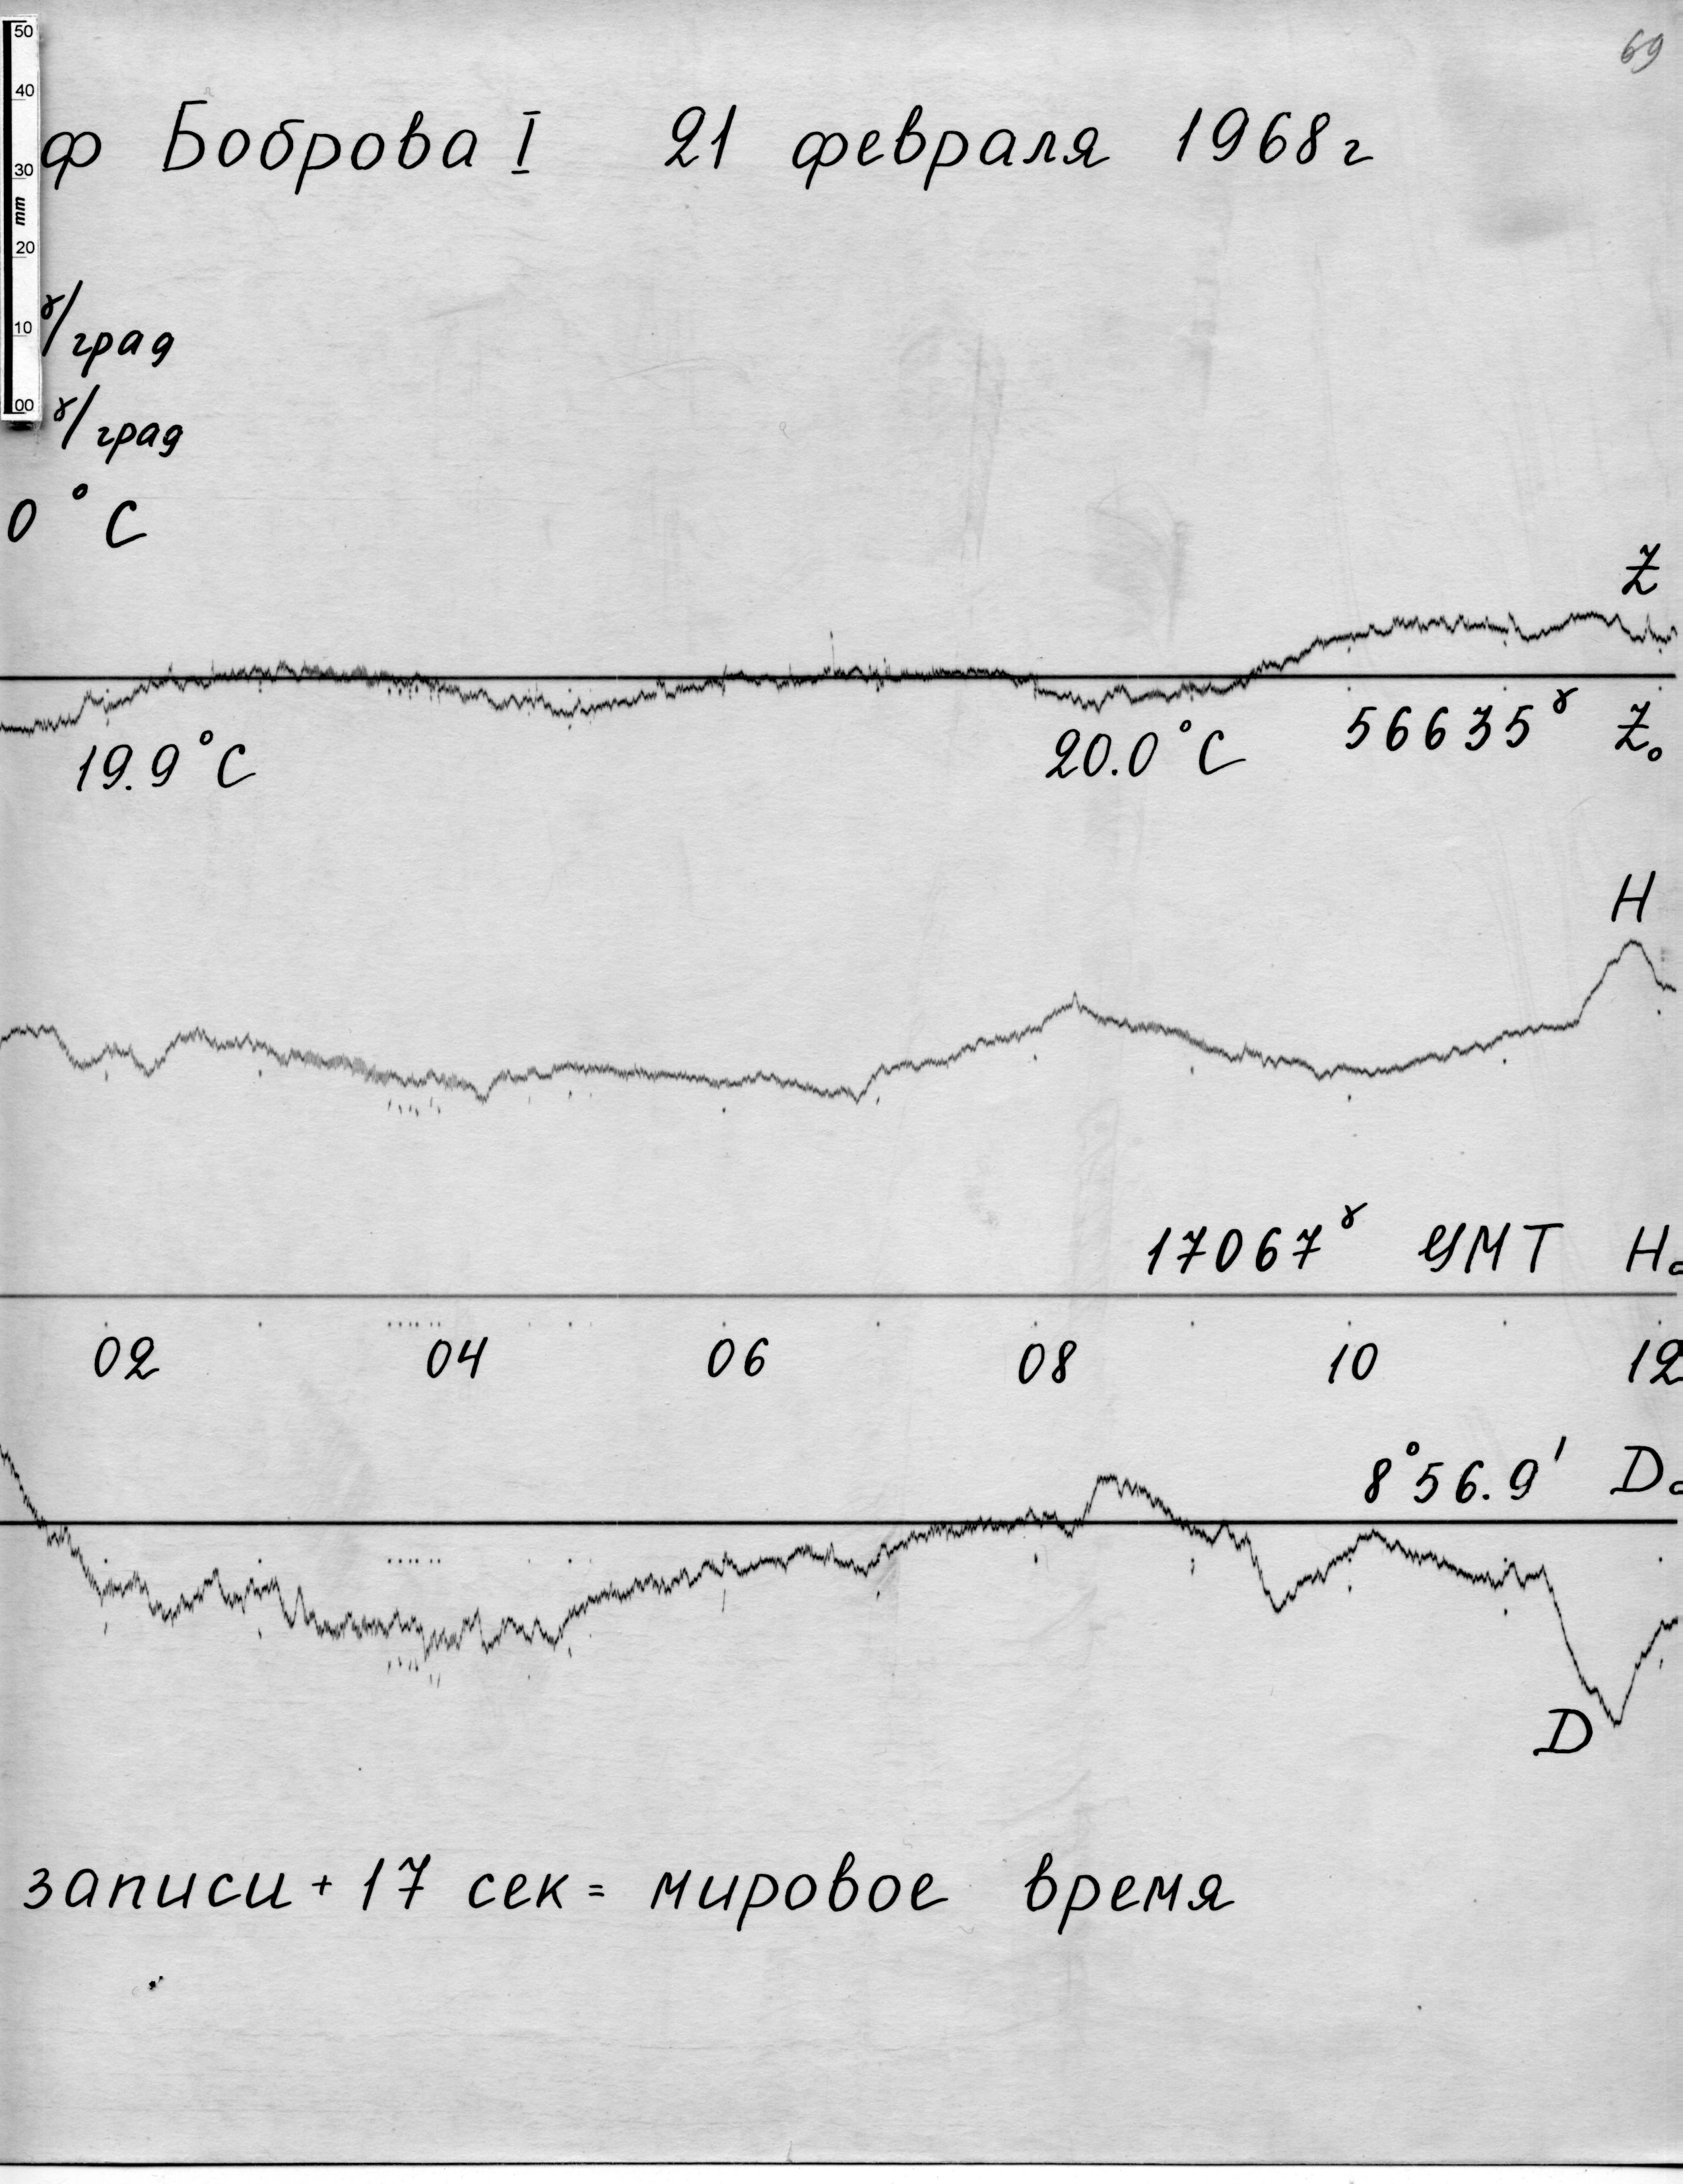 50
40
30
mm
20
10
00
69
ф Боброва I 21 февраля 1968 г
γ/град
γ/град
0°C
Z
19.9°C 20.0°C 56635γ Z₀
H
17067γ ЦМТ H₀
02 04 06 08 10 12
8°56.9' D₀
D
записи + 17 сек = мировое время